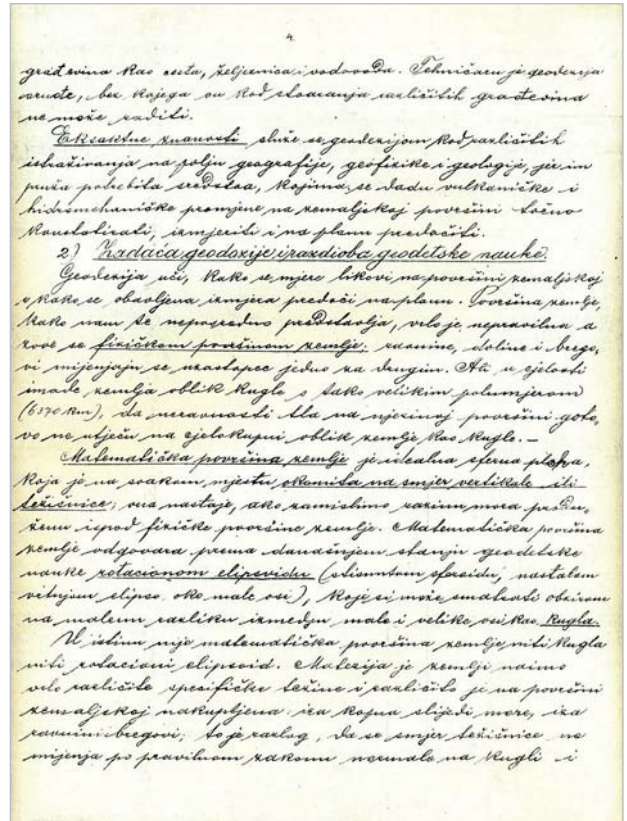 4.
građevina kao cesta, željeznica i vodovoda. Tehničaru je geodezija
oruđe, bez kojega on kod stvaranja različitih građevina
ne može raditi.
Eksaktne znanosti služe se geodezijom kod različitih
istraživanja na polju geografije, geofizike i geologije, jer im
pruža potrebita sredstva, kojima se dadu vulkaničke i
hidromehaničke promjene na zemaljskoj površini točno
konstatirati, izmjeriti i na planu predočiti.
2.) Zadaća geodezije i razdioba geodetske nauke.
Geodezija uči, kako se mjere likovi na površini zemaljskoj
i kako se obavljena izmjera predoči na planu. Površina zemlje,
kako nam se neposredno predstavlja, vrlo je nepravilna a
zove se fizičkom površinom zemlje; ravnine, doline i brego,
vi mijenjaju se uzastopce jedno za drugim. Ali u cjelosti
imade zemlja oblik kugle s tako velikim polumjerom
(6370 km), da neravnosti tla na njezinoj površini goto,
vo ne utječu na cjelokupni oblik zemlje kao kugle. –
Matematička površina zemlje je idealna sferna ploha,
koja je na svakom mjestu okomita na smjer vertikale ili
težišnice; ona nastaje, ako zamislimo razinu mora produ,
ženu ispod fizičke površine zemlje. Matematička površina
zemlje odgovara prema današnjem stanju geodetske
nauke rotacionom elipsoidu (sferoidu, nastalom
vrtnjom elipse oko male osi), koje si može smatrati obzirom
na malenu razliku izmedju male i velike osi kao kugla.
U istinu nije matematička površina zemlje niti kugla
niti rotacioni elipsoid. Materija je zemlji naime
vrlo različite specifičke težine i različito je na površini
zemaljskoj nakupljena: iza kopna slijedi more, iza
ravnini bregovi; to je razlog, da se smjer težišnice ne
mijenja po pravilnom zakonu normale na kugli i